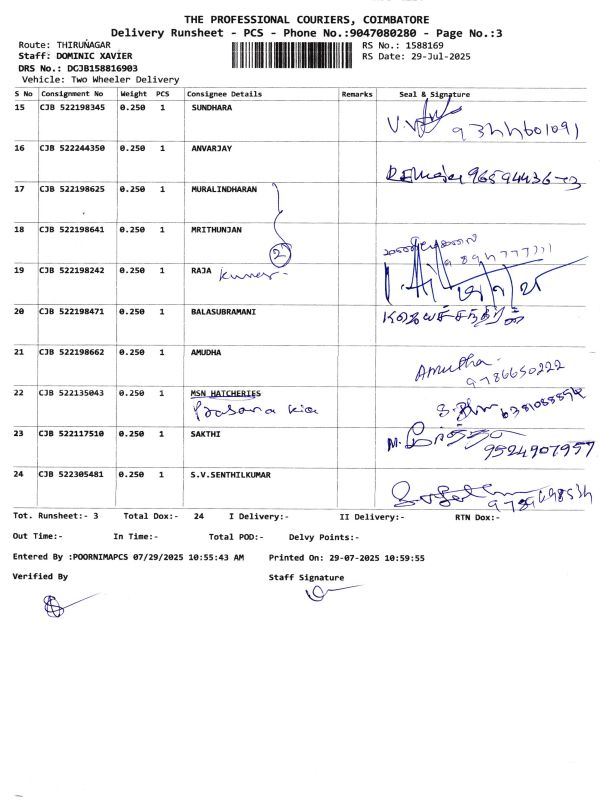 THE PROFESSIONAL COURIERS, COIMBATORE
Delivery Runsheet - PCS - Phone No.:9047080280 - Page No.:3
Route: THIRUNAGAR RS No.: 1588169
Staff: DOMINIC XAVIER RS Date: 29-Jul-2025
DRS No.: DCJB158816903
Vehicle: Two Wheeler Delivery
S No Consignment No Weight PCS Consignee Details Remarks Seal & Signature
15 CJB 522198345 0.250 1 SUNDHARA
16 CJB 522244350 0.250 1 ANVARJAY
17 CJB 522198625 0.250 1 MURALINDHARAN
18 CJB 522198641 0.250 1 MRITHUNJAN
2
19 CJB 522198242 0.250 1 RAJA Kumar-
20 CJB 522198471 0.250 1 BALASUBRAMANI
21 CJB 522198662 0.250 1 AMUDHA
Amutha.
9786650222
22 CJB 522135043 0.250 1 MSN HATCHERIES
23 CJB 522117510 0.250 1 SAKTHI
9524907957
24 CJB 522305481 0.250 1 S.V.SENTHILKUMAR
Tot. Runsheet:- 3 Total Dox:- 24 I Delivery:- II Delivery:- RTN Dox:-
Out Time:- In Time:- Total POD:- Delvy Points:-
Entered By :POORNIMAPCS 07/29/2025 10:55:43 AM Printed On: 29-07-2025 10:59:55
Verified By Staff Signature